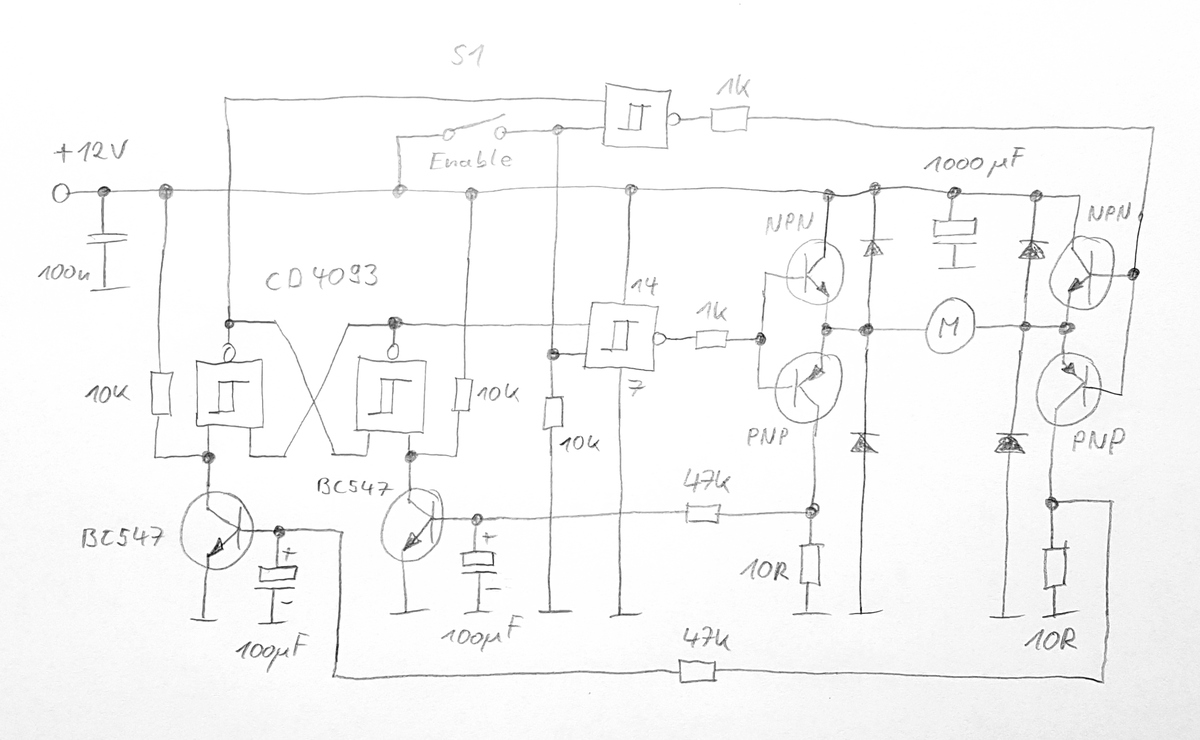 S1
1k
+12V
Enable
1000µF
NPN
NPN
100n
CD4093
14
1k
M
10k
10k
7
10k
PNP
PNP
BC547
47k
BC547
+
10R
+
-
-
100µF
100µF
47k
10R